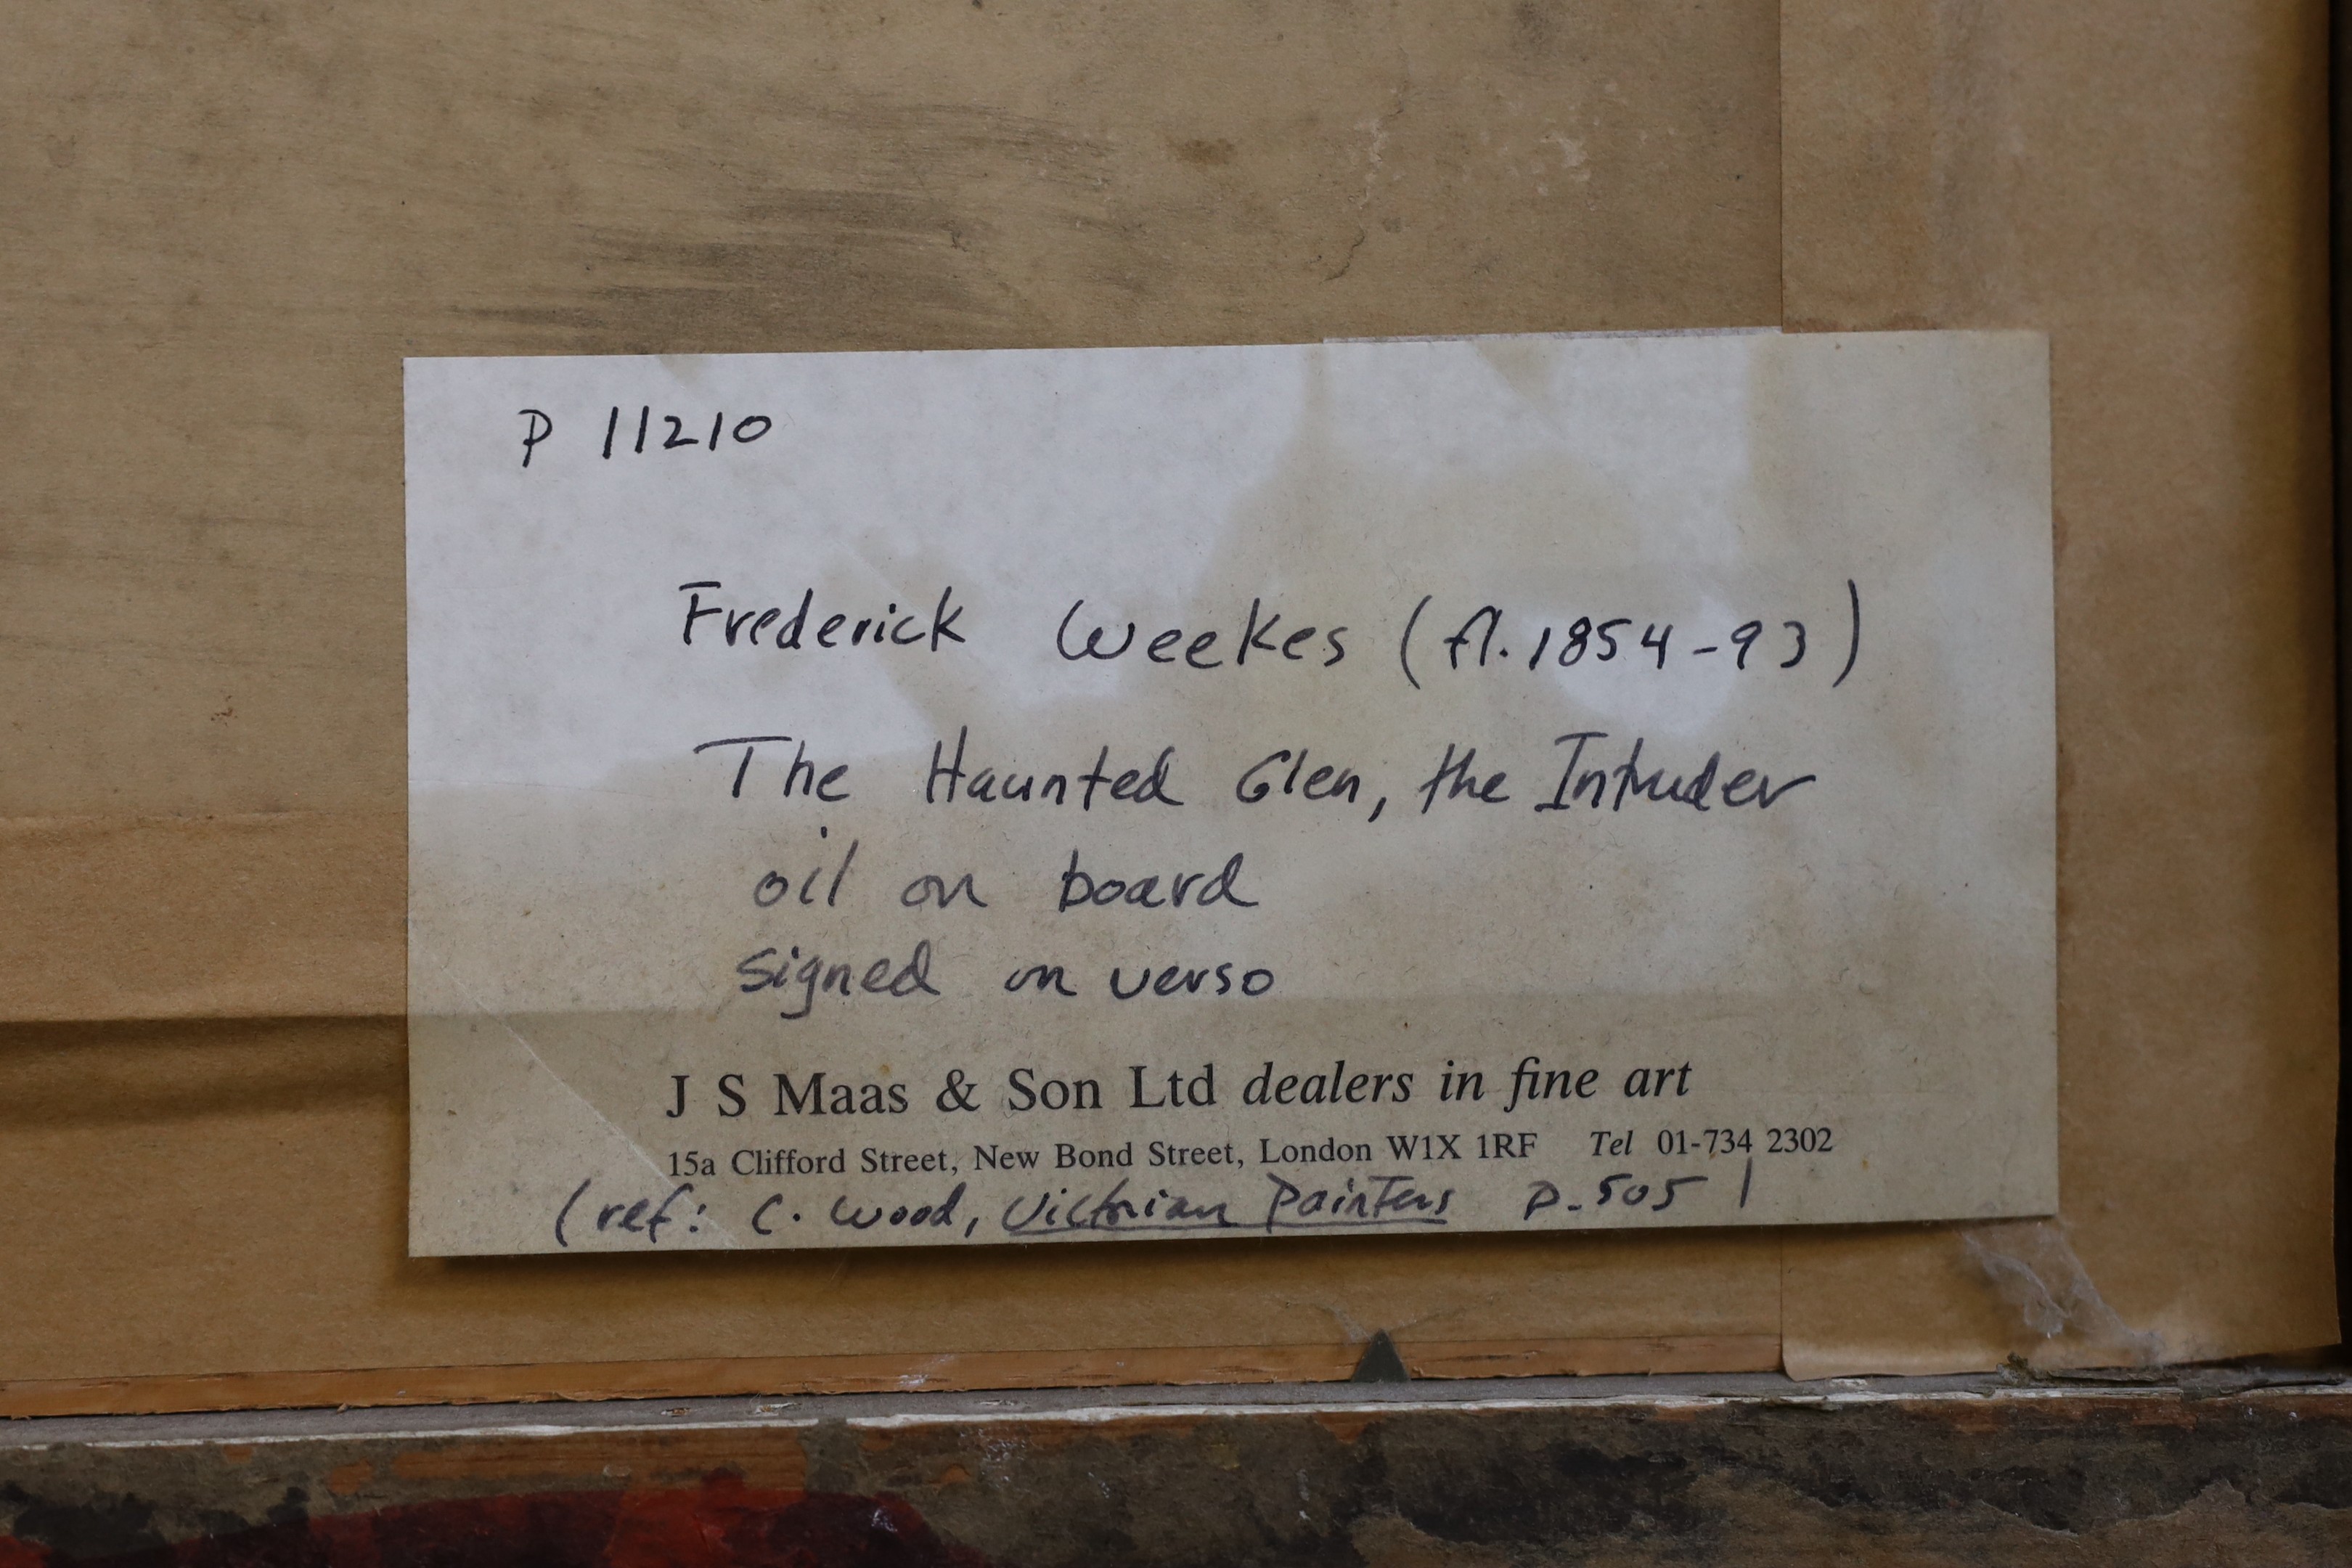 P 11210
Frederick Weekes (fl. 1854-93)
The Haunted Glen, the Intruder
oil on board
signed on verso
J S Maas & Son Ltd dealers in fine art
15a Clifford Street, New Bond Street, London W1X 1RF Tel 01-734 2302
(ref: C. Wood, Victorian Painters p. 505)